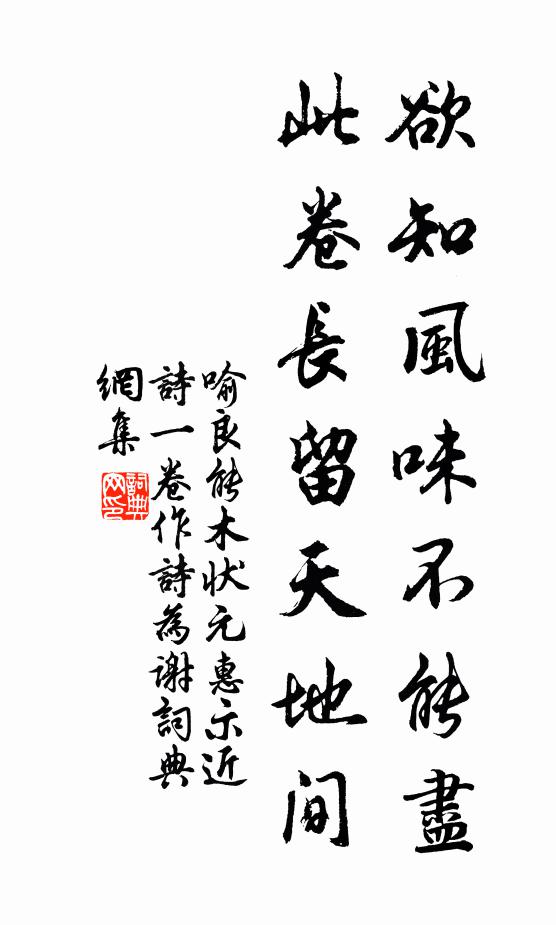 欲知風味不能盡
此卷長留天地间
喻良能木状元惠示近
詩一卷作詩為谢詞典
網集
詞典
网印